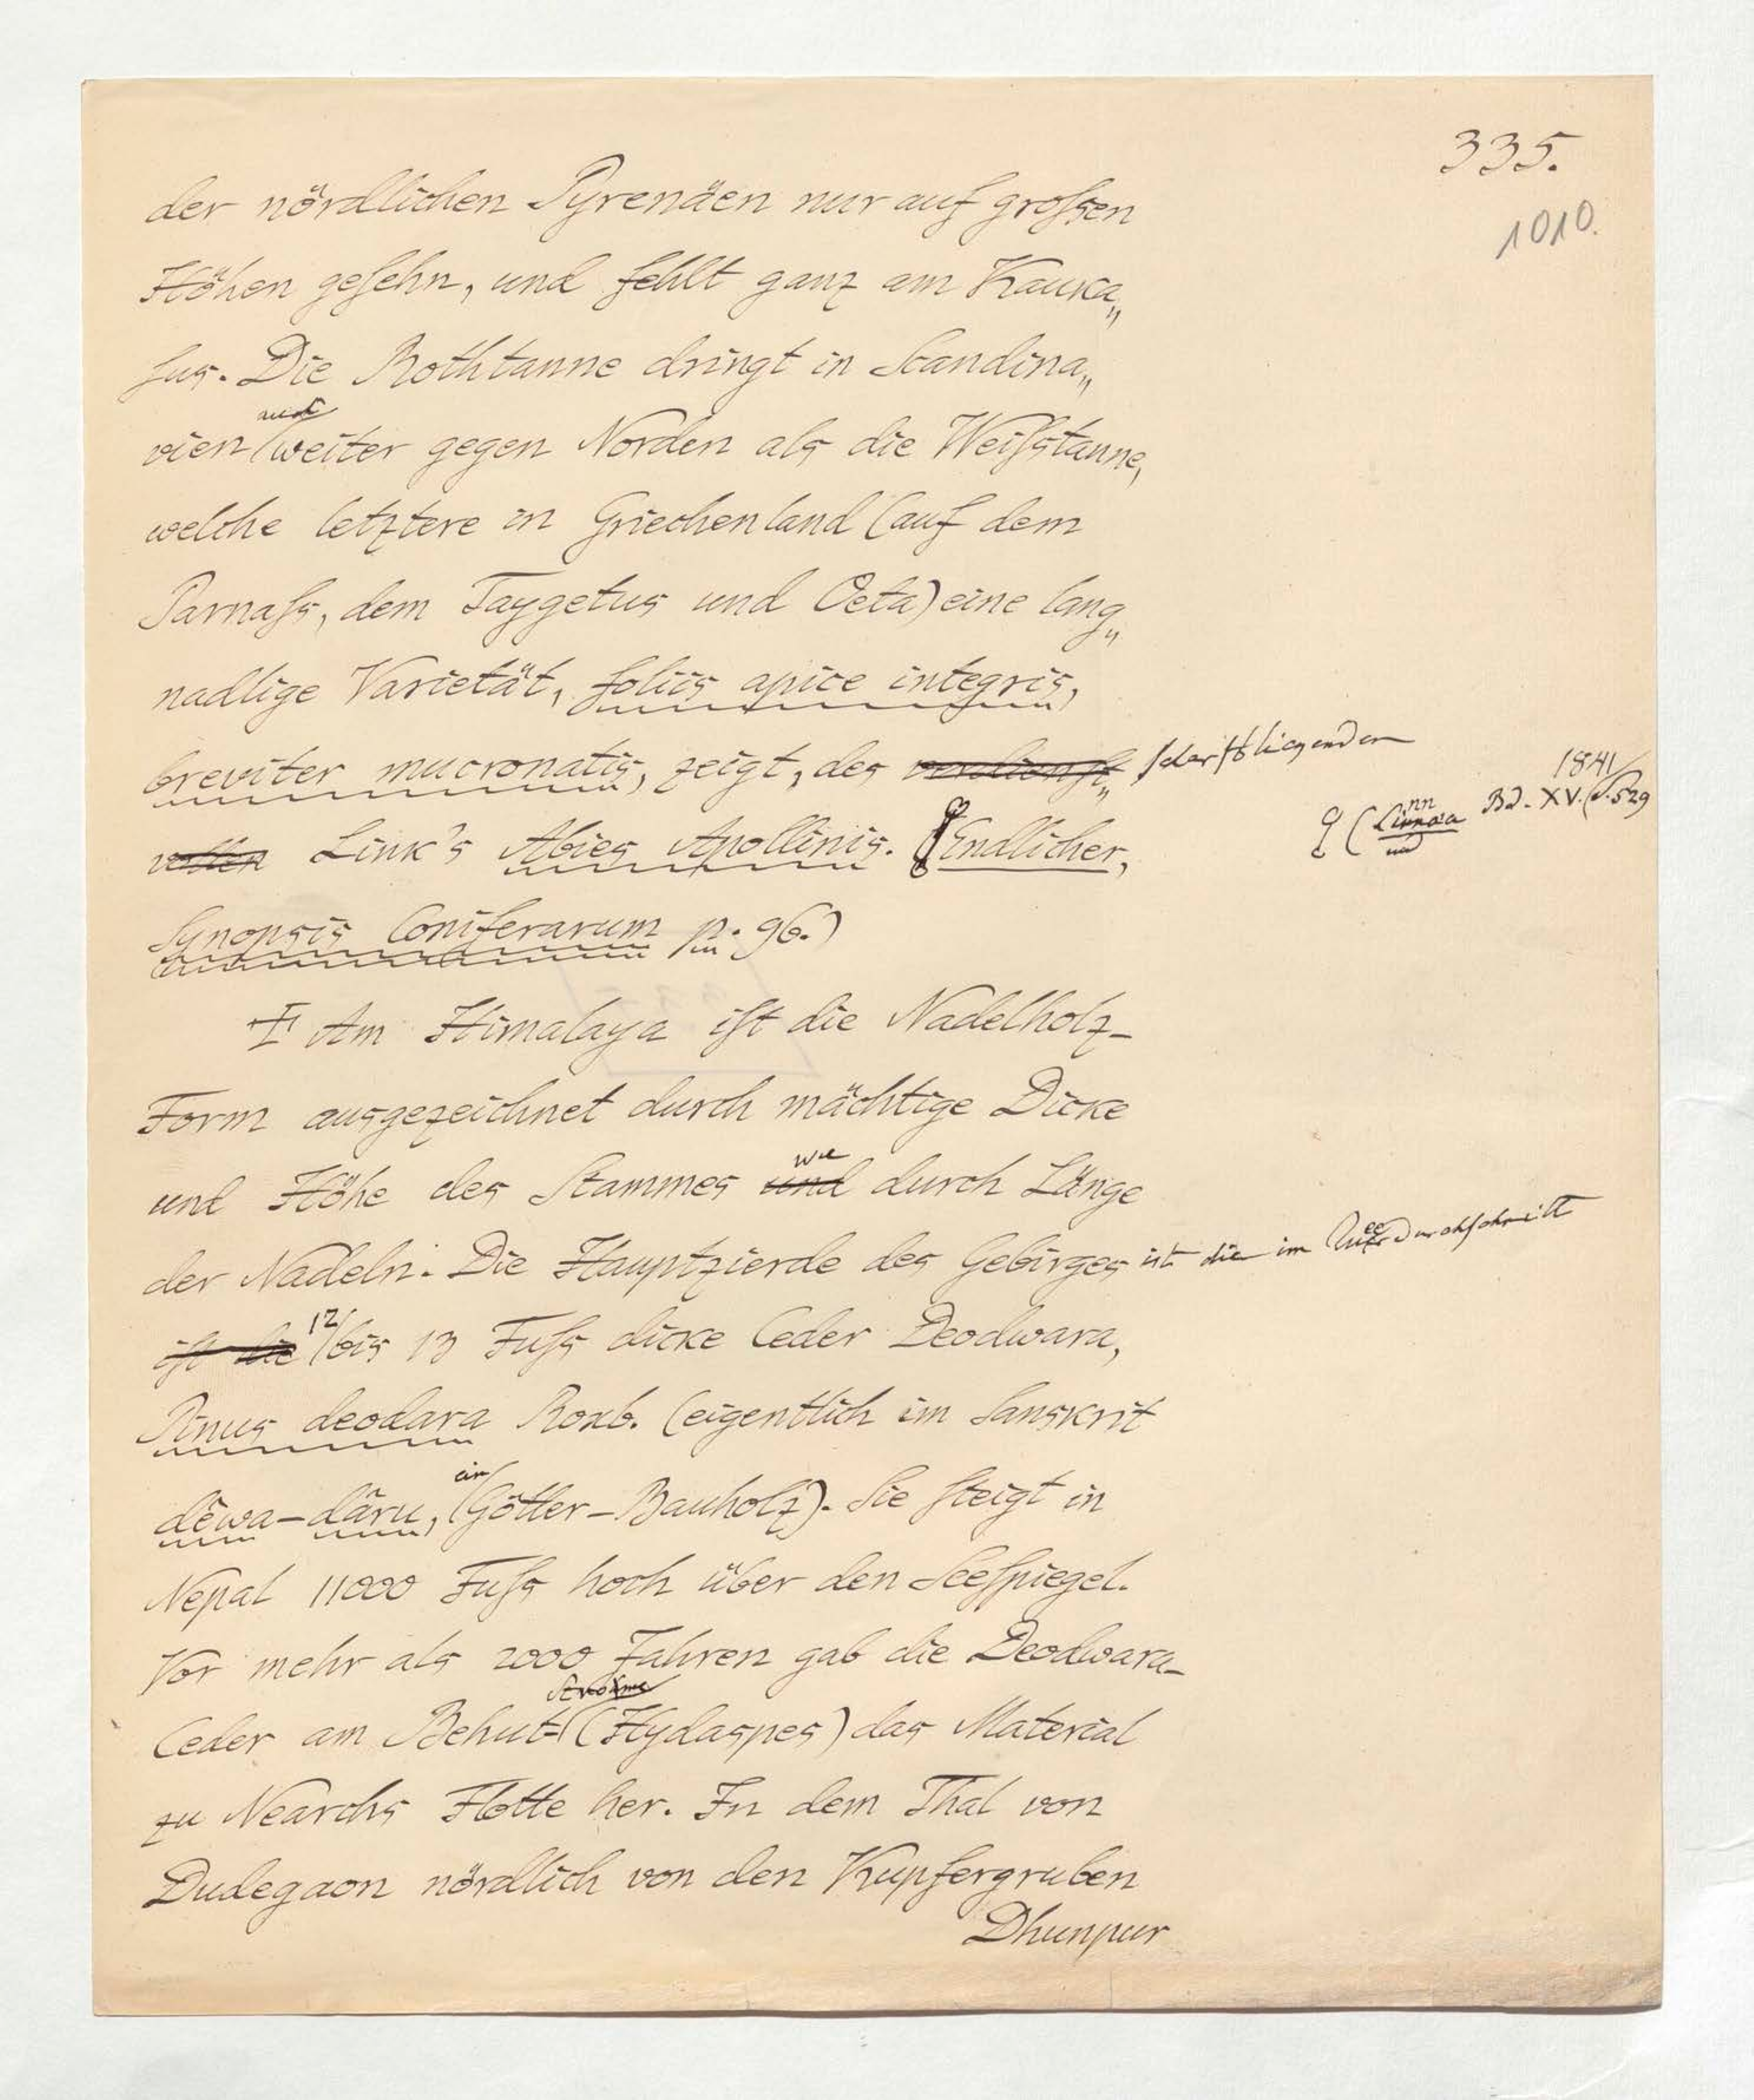 335.
1010.
der nördlichen Pyrenäen nur auf groſsen
Höhen geſehn, und fehlt ganz am Kauka„
ſus. Die Rothtanne dringt in Scandina„
auch
vien weiter gegen Norden als die Weiſstanne,
welche letztere in Griechenland (auf dem
Parnaſs, dem Taygetus und Oeta) eine lang„
nadlige Varietät, foliis apice integris,
breviter mucronatis, zeigt, des verdienſt„ ſcharfſichtigen
vollen Link's Abies Apollinis. (Endlicher,
(Linnæa Bd. XV. 1841 S. 529
Synopsis Coniferarum p. 96.)
Am Himalaya iſt die Nadelholz-
Form ausgezeichnet durch mächtige Dicke
wie
und Höhe des Stammes und durch Länge
der Nadeln. Die Hauptzierde des Gebirges ist die im Queerdurchſchnitt
iſt die 12 bis 13 Fuſs dicke Ceder Deodwara,
Pinus deodara Roxb. (eigentlich im Sanskrit
ein
dêwa-dâru, Götter-Bauholz). Sie ſteigt in
Nepal 11000 Fuſs hoch über den Seeſpiegel.
Vor mehr als 2000 Jahren gab die Deodwara-
Strome
Ceder am Behut- (Hydaspes) das Material
zu Nearchs Flotte her. In dem Thal von
Dudegaon nördlich von den Kupfergruben
Dhunpur